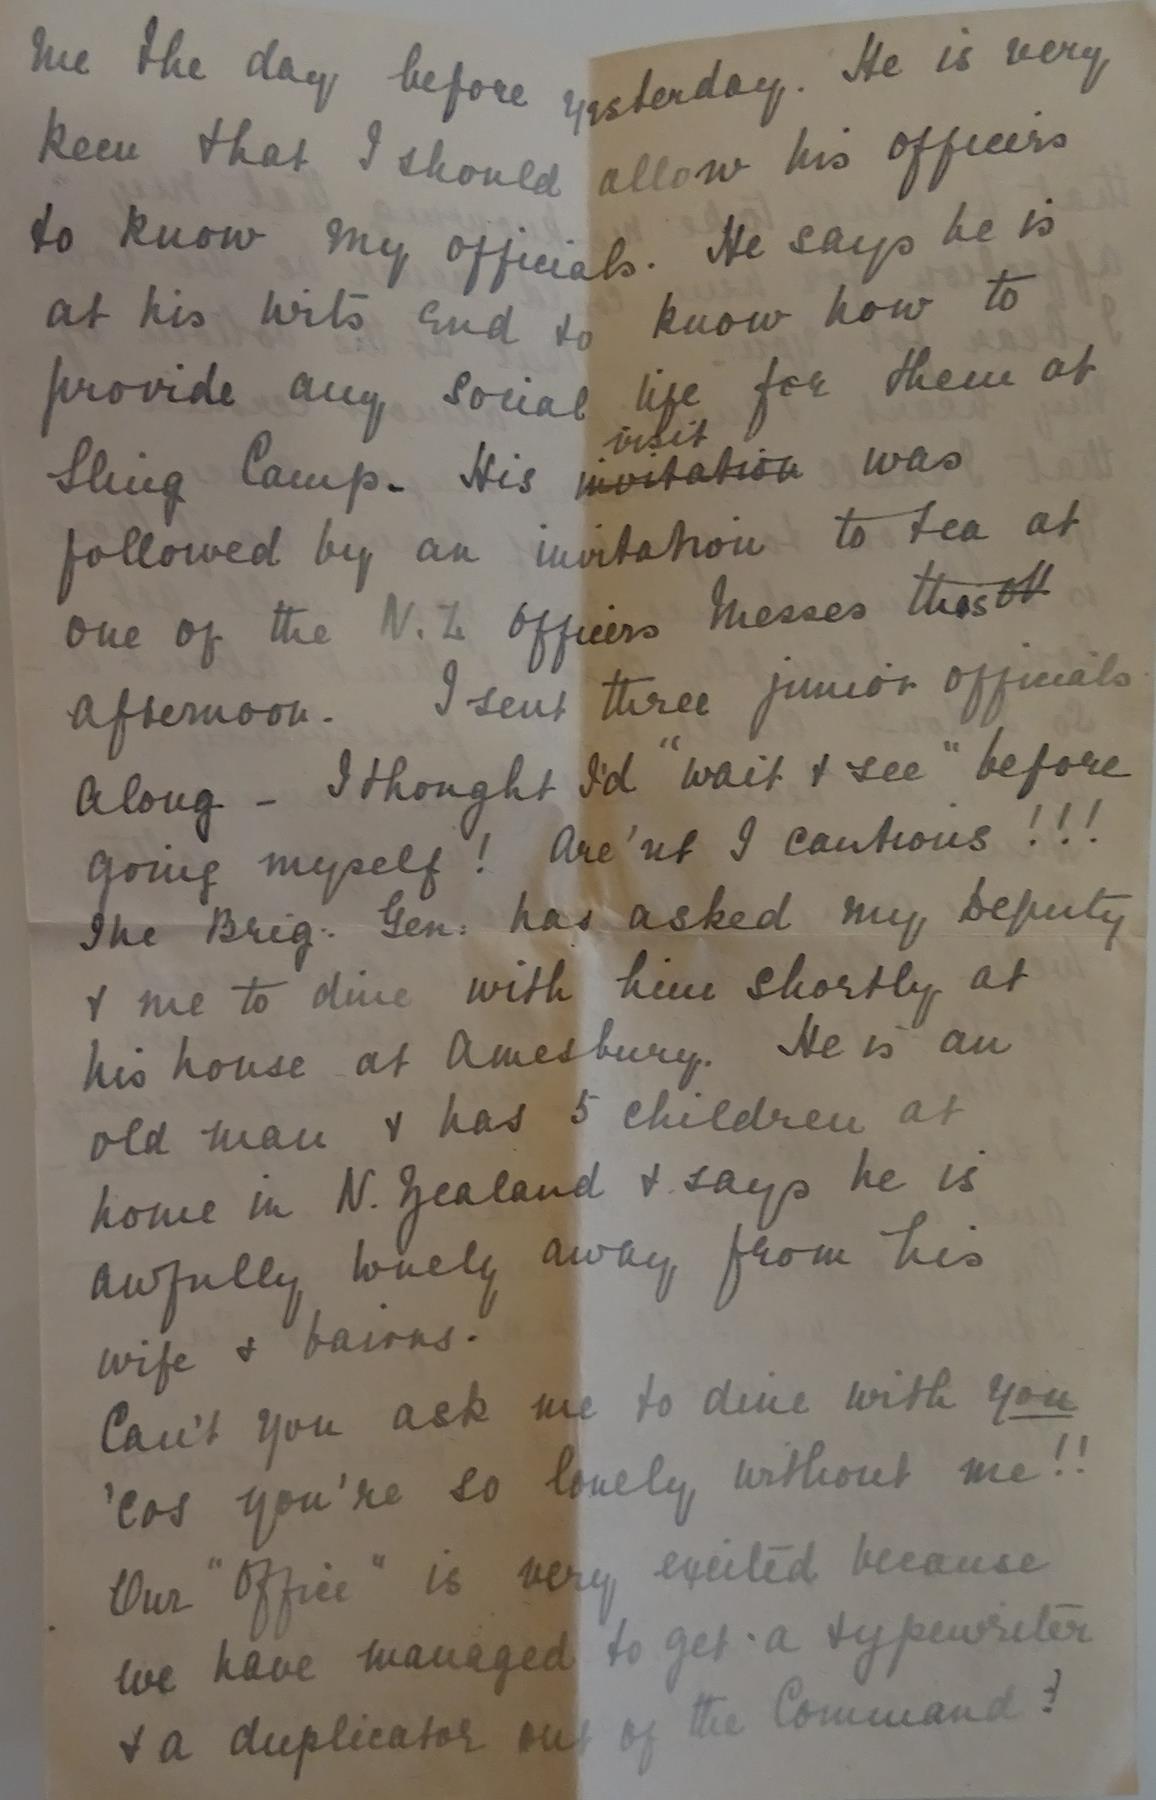 me the day before yesterday. He is very
keen that I should allow his officers
to know my officials. He says he is
at his wits end to know how to
provide any social life for them at
visit
Sling Camp. His invitation was
followed by an invitation to tea at
one of the N.Z officers Messes this
afternoon. I sent three junior officials
along - I thought I'd "wait & see" before
going myself! Are'nt I cautious!!!
The Brig: Gen: has asked my Deputy
& me to dine with him shortly at
his house at Amesbury. He is an
old man & has 5 children at
home in N. Zealand & says he is
awfully lonely away from his
wife & bairns.
Can't you ask me to dine with you
'cos you're so lonely without me!!
Our "Office" is very excited because
we have managed to get a typewriter
& a duplicator out of the Command?